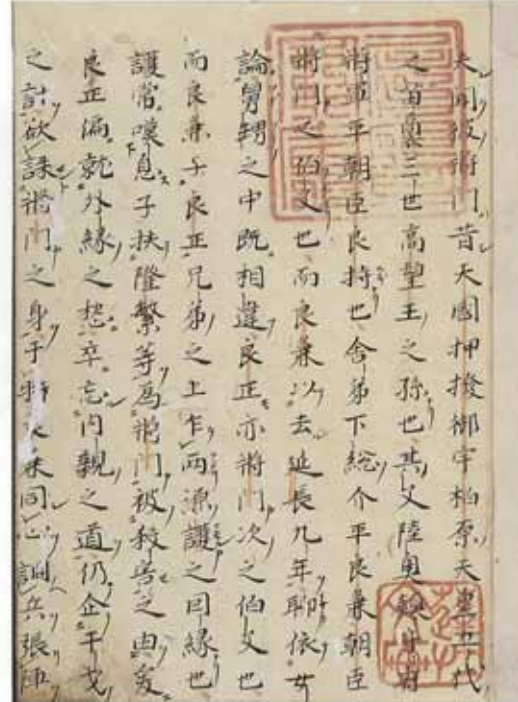 夫聞彼将門昔天國押撥御宇柏原天皇五代
之苗裔三世高望王之孫也其父陸奥鎮守府
将軍平朝臣良持也舎弟下総介平良兼朝臣
将門之伯父也而良兼以去延長九年聊依女
論舅甥之中既相違良正亦将門次之伯父也
而良兼与良正兄弟之上乍両源護之因縁也
護常嘆息子扶隆繁等為将門被殺害之由爰
良正偏就外縁之愁卒忘内親之道仍企干戈
之計欲誅将門之身于時同心調兵張陣